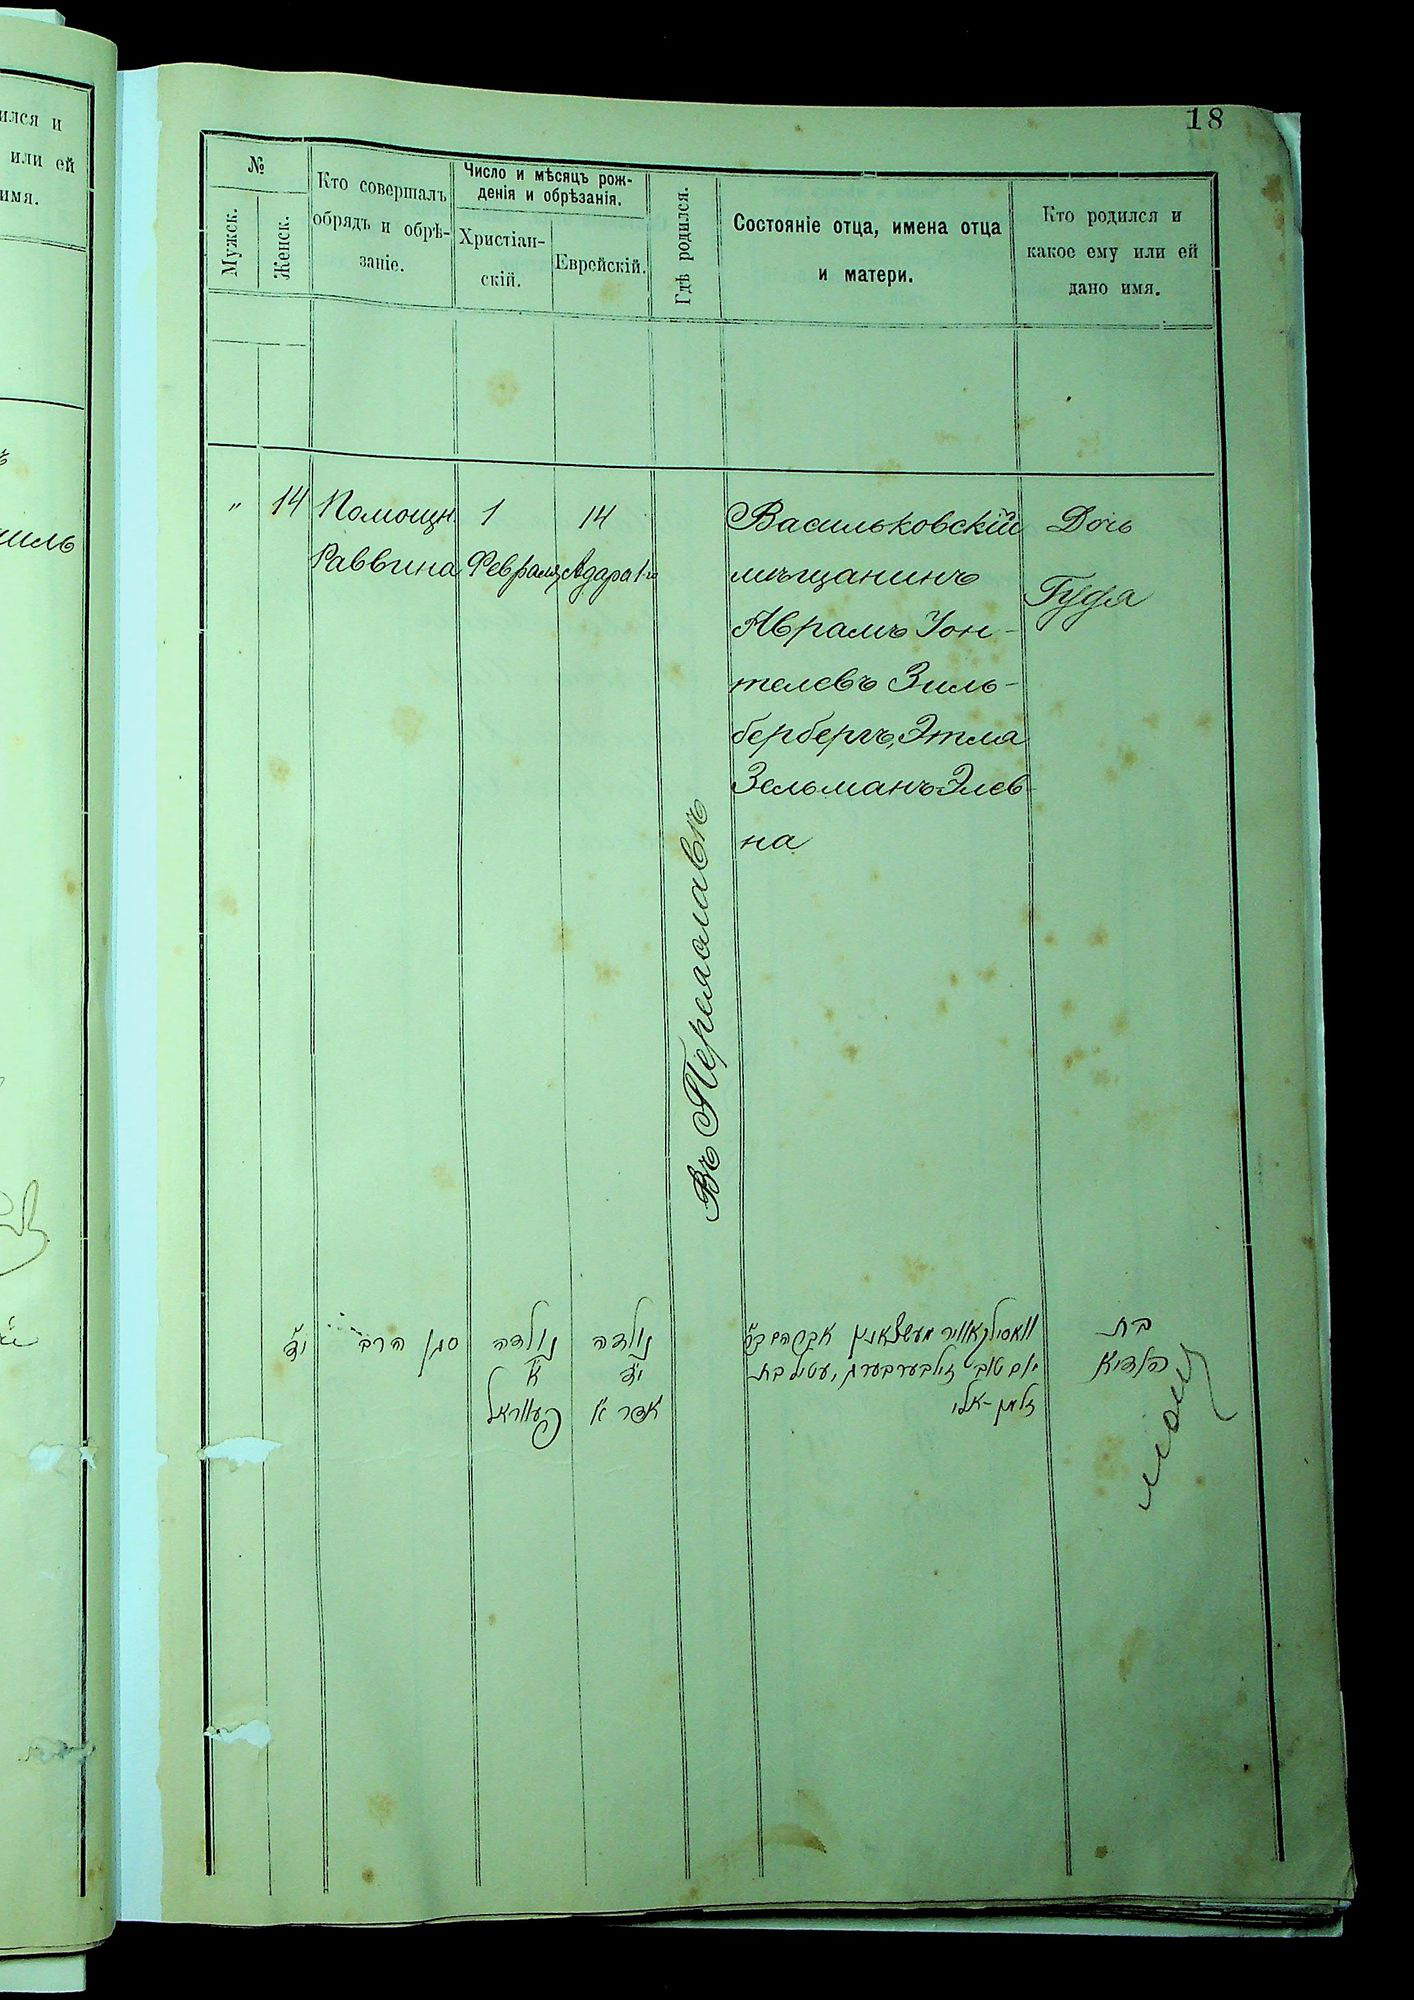 18
№
Мужск.
Женск.
Кто совершалъ
обрядъ и обрѣ-
заніе.
Число и мѣсяцъ рож-
денія и обрѣзанія.
Христіан-
скій.
Еврейскій.
Гдѣ родился.
Состояніе отца, имена отца
и матери.
Кто родился и
какое ему или ей
дано имя.
ился и
или ей
имя.
"
14
Помощн.
Раввина
1
Февраля
14
Адара 1го
Въ Переяславѣ
Васильковскій
мѣщанинъ
Аврамъ Іон-
телевъ Зиль-
бербергъ, Этля
Зельманъ-Элев-
на
Дочь
Гудя
י"ד
סגן הרב
נולדה
א'
פעווראל
נולדה
י"ד
אדר א'
וואסילקאוויר מעשצאנין אברהם ב"ר
יום טוב זילבערבערג, עטיל בת
זלמן-אלי
בת